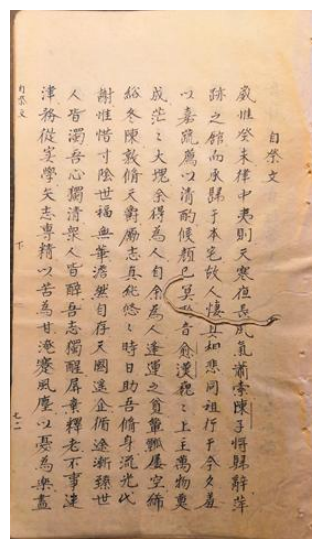 自祭文
歲惟癸未律中夷則天寒夜長風氣蕭索陳子將歸辭萍
跡之館而永歸于本宅故人悽其相悲同祖行于今夕羞
以嘉蔬薦以清酌候顏已冥音愈漠巍〻上主萬物奠
成茫〻大塊余得為人自余為人逢運之貧簞瓢屢空絺
綌冬陳敦脩天爵勵志真純悠〻時日助吾脩身流光代
謝惟惜寸陰世福無華澹然自存天國遙企循途漸臻世
人皆濁吾心獨清衆人皆醉吾志獨醒屏棄釋老不事迷
津務從寔學矢志專精以苦為甘淹蹇風塵以憂為樂盡
自祭文
下
七二